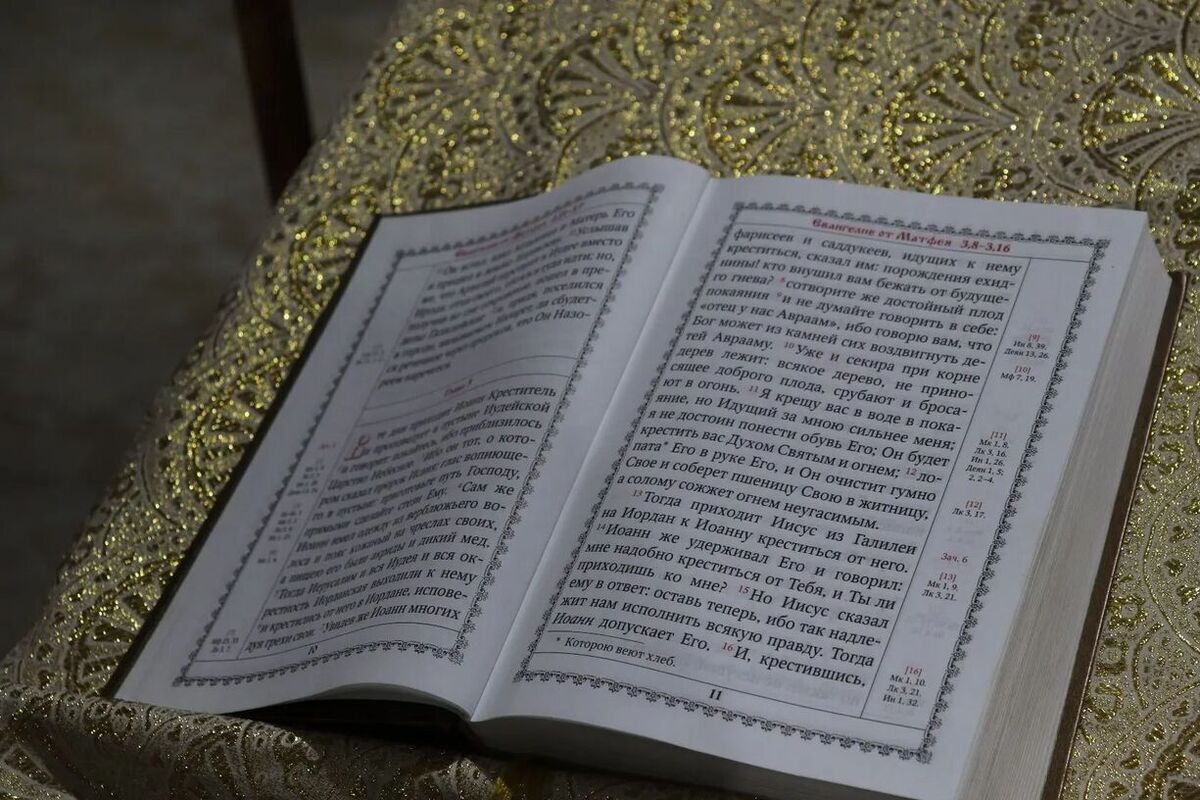 Матерь Его
Услышав
в Иудее вместо
туда идти; но,
пошел в пре-
придя, поселился
Назарет, да сбудет-
ся реченное через пророков, что Он Назо-
реем наречется.
Глава 3
В те дни приходит Иоанн Креститель
и проповедует в пустыне Иудейской
²и говорит: покайтесь, ибо приблизилось
Царство Небесное. ³Ибо он тот, о кото-
ром сказал пророк Исаия: глас вопиюще-
го в пустыне: приготовьте путь Господу,
прямыми сделайте стези Ему. ⁴Сам же
Иоанн имел одежду из верблюжьего во-
лоса и пояс кожаный на чреслах своих,
а пищею его были акриды и дикий мед.
⁵Тогда Иерусалим и вся Иудея и вся ок-
рестность Иорданская выходили к нему
⁶и крестились от него в Иордане, испове-
дуя грехи свои. ⁷Увидев же Иоанн многих
10
Евангелие от Матфея 3,8–3,16
фарисеев и саддукеев, идущих к нему
креститься, сказал им: порождения ехид-
нины! кто внушил вам бежать от будуще-
го гнева? ⁸сотворите же достойный плод
покаяния ⁹и не думайте говорить в себе:
«отец у нас Авраам», ибо говорю вам, что
Бог может из камней сих воздвигнуть де-
тей Аврааму. ¹⁰Уже и секира при корне
дерев лежит: всякое дерево, не прино-
сящее доброго плода, срубают и броса-
ют в огонь. ¹¹Я крещу вас в воде в пока-
яние, но Идущий за мною сильнее меня;
я не достоин понести обувь Его; Он будет
крестить вас Духом Святым и огнем; ¹²ло-
пата* Его в руке Его, и Он очистит гумно
Свое и соберет пшеницу Свою в житницу,
а солому сожжет огнем неугасимым.
¹³Тогда приходит Иисус из Галилеи
на Иордан к Иоанну креститься от него.
¹⁴Иоанн же удерживал Его и говорил:
мне надобно креститься от Тебя, и Ты ли
приходишь ко мне? ¹⁵Но Иисус сказал
ему в ответ: оставь теперь, ибо так надле-
жит нам исполнить всякую правду. Тогда
Иоанн допускает Его. ¹⁶И, крестившись,
* Которою веют хлеб.
11
[9]
Ин 8, 39.
Деян 13, 26.
[10]
Мф 7, 19.
[11]
Мк 1, 8.
Лк 3, 16.
Ин 1, 26.
Деян 1, 5;
2, 2–4.
[12]
Лк 3, 17.
Зач. 6
[13]
Мк 1, 9.
Лк 3, 21.
[16]
Мк 1, 10.
Лк 3, 21.
Ин 1, 32.